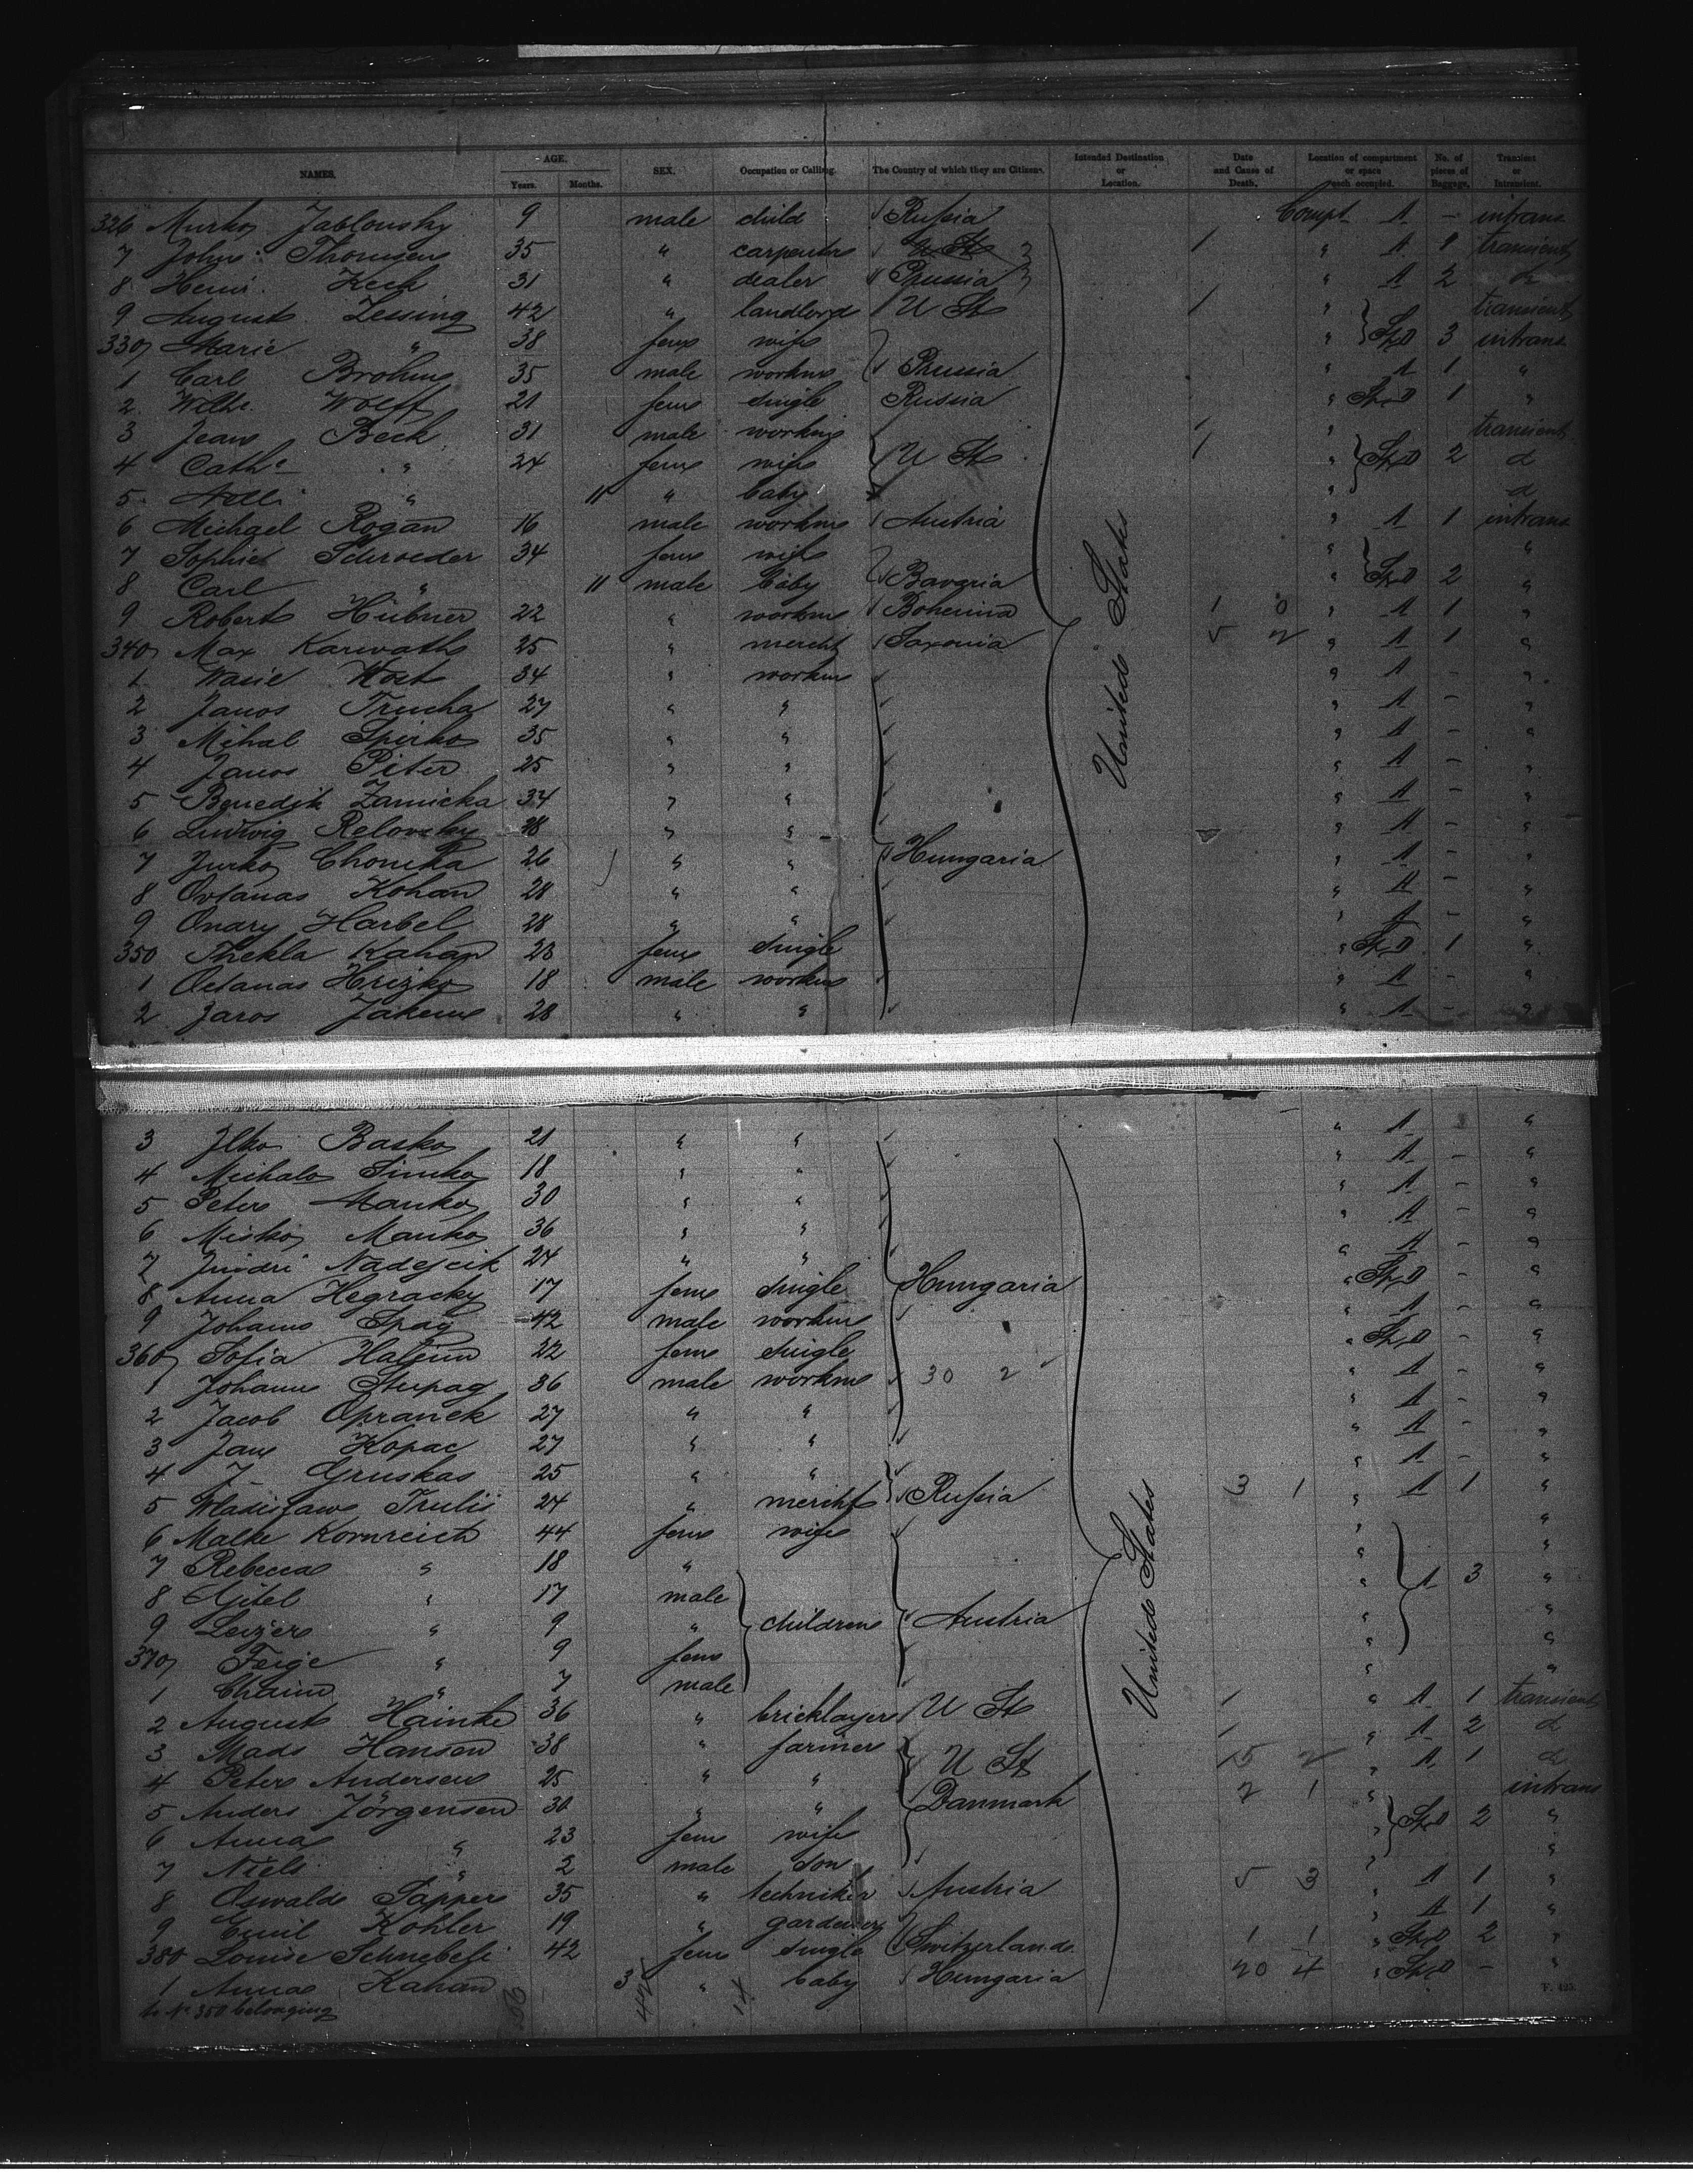 NAMES. AGE. Years. Months. SEX. Occupation or Calling. The Country of which they are Citizens. Intended Destination or Location. Date and Cause of Death. Location of compartment or space each occupied. No. of pieces of Baggage. Transient or Intransient.
326 Murko Jablonsky 9 male child Russia Compt A - intrans
7 John Thomsen 35 " carpenter U St 1 " A 1 transient
8 Heinr. Keck 31 " dealer Prussia " A 2 d
9 August Lessing 42 " landlord U St 1 " transient
330 Marie " 38 fem wife " Sp D 3 intrans
1 Carl Brohm 35 male workm Prussia " A 1 "
2 Wilhe. Wolff 21 fem single Russia " Sp D 1 "
3 Jean Beck 31 male workm 1 " transient
4 Cathe " 24 fem wife U St 1 " Sp D 2 d
5 Nelli " 11 " baby " d
6 Michael Rogan 16 male workm Austria " A 1 intrans
7 Sophie Schroeder 34 fem wife " "
8 Carl " 11 male baby Bavaria " Sp D 2 "
9 Robert Hübner 22 " workm Bohemia 1 0 " A 1 "
340 Max Karwath 25 " mercht Saxonia 5 2 " A 1 "
1 Wasil Kost 34 " workm " A - "
2 Janos Trucha 27 " " " A - "
3 Mihal Spirko 35 " " " A - "
4 Janos Piter 25 " " " A - "
5 Benedik Zamicka 34 " " " A - "
6 Ludwig Relovsky 28 " " " A - "
7 Jurko Chomka 26 " " Hungaria " A - "
8 Ostanas Kohan 28 " " " A - "
9 Onary Harbel 28 " " " A - "
350 Thekla Kahan 28 fem single " Sp D 1 "
1 Ostanas Hrizko 18 male workm " A - "
2 Jaros Jakem 28 " " " A - "
United States
3 Ilko Basko 21 " " " A "
4 Michalo Simko 18 " " " A - "
5 Peter Manko 30 " " " A - "
6 Misko Manko 36 " " " A - "
7 Juiodri Nadejcik 24 " " " A - "
8 Anna Hegracky 17 fem single Hungaria " Sp D - "
9 Johann Spag 42 male workm " A - "
360 Sofia Haljun 22 fem single " Sp D - "
1 Johann Stupag 36 male workm 30 2 " A - "
2 Jacob Opranek 27 " " " A - "
3 Jan Kopac 27 " " " A - "
4 J. Gruskas 25 " " " A - "
5 Wladislaw Trulis 24 " mercht Russia 3 1 " A 1 "
6 Malke Kornreich 44 fem wife " "
7 Rebecca " 18 " " "
8 Gitel " 17 male " A 3 "
9 Leizer " 9 " children Austria " "
370 Feige " 9 fem "
1 Chaim " 7 male " "
2 August Hainke 36 " bricklayer U St 1 " A 1 transient
3 Mads Hansen 38 " farmer 1 " A 2 d
4 Peter Andersen 25 " " U St 15 2 " A 1 d
5 Anders Jörgensen 30 " " Danmark 2 1 " intrans
6 Anna " 23 fem wife " Sp D 2 "
7 Niels " 2 male son " "
8 Oswald Tapper 35 " techniker Austria 5 3 " A 1 "
9 Emil Kohler 19 " gardener " A 1 "
380 Louise Schnebeli 42 fem single Switzerland 1 1 " Sp D 2 "
1 Anna Kahan 3 " baby Hungaria 20 4 " Sp D - "
to No 350 belonging
United States